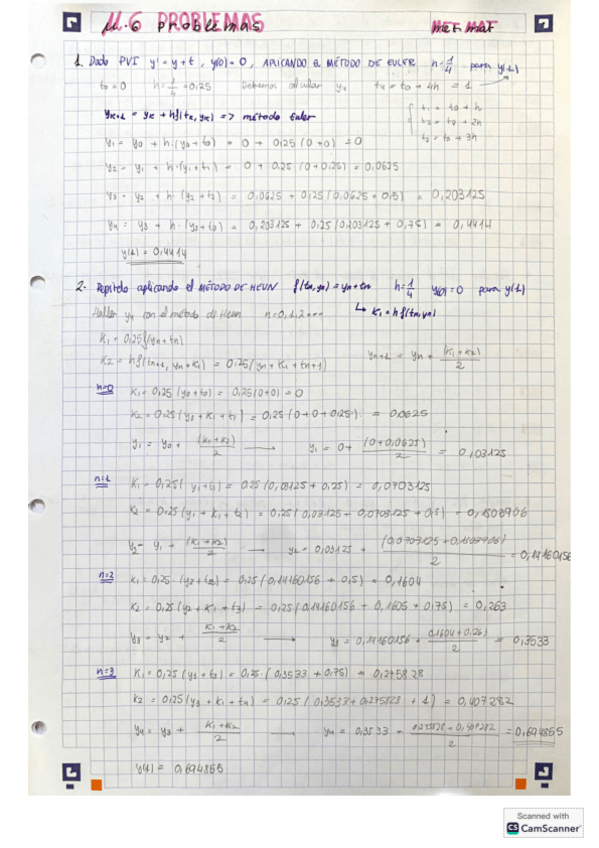 U.6 PROBLEMAS MET MAT
1. Dado PVI y' = y+t, y(0)=0, APLICANDO EL MÉTODO DE EULER h=1/4 para y(1)
t0=0 h=1/4=0,25 Debemos calcular y4 t4 = t0 + 4h = 1
yk+1 = yk + hf(tk, yk) => método Euler
t1 = t0 + h
t2 = t0 + 2h
t3 = t0 + 3h
y1 = y0 + h·(y0+t0) = 0 + 0,25(0+0) = 0
y2 = y1 + h·(y1+t1) = 0 + 0,25(0+0,25) = 0,0625
y3 = y2 + h·(y2+t2) = 0,0625 + 0,25(0,0625+0,5) = 0,203125
y4 = y3 + h·(y3+t3) = 0,203125 + 0,25(0,203125+0,75) = 0,4414
y(1) = 0,4414
2- Repítelo aplicando el MÉTODO DE HEUN f(tn,yn)=yn+tn h=1/4 y(0)=0 para y(1)
Hallar y4 con el método de Heun n=0,1,2... ↳ K1=hf(tn,yn)
K1 = 0,25(yn+tn)
K2 = hf(tn+1, yn+K1) = 0,25(yn+K1+tn+1) yn+1 = yn + (K1+K2)/2
n=0 K1 = 0,25(y0+t0) = 0,25(0+0) = 0
K2 = 0,25(y0+K1+t1) = 0,25(0+0+0,25) = 0,0625
y1 = y0 + (K1+K2)/2 → y1 = 0 + (0+0,0625)/2 = 0,03125
n=1 K1 = 0,25(y1+t1) = 0,25(0,03125+0,25) = 0,0703125
K2 = 0,25(y1+K1+t2) = 0,25(0,03125+0,0703125+0,5) = 0,1508906
y2 = y1 + (K1+K2)/2 → y2 = 0,03125 + (0,0703125+0,15039061)/2 = 0,14160156
n=2 K1 = 0,25·(y2+t2) = 0,25(0,14160156+0,5) = 0,1604
K2 = 0,25(y2+K1+t3) = 0,25(0,14160156+0,1605+0,75) = 0,263
y3 = y2 + K1+K2/2 → y3 = 0,14160156 + 0,1604+0,263/2 = 0,3533
n=3 K1 = 0,25(y3+t3) = 0,25·(0,3533+0,75) = 0,275828
K2 = 0,25(y3+K1+t4) = 0,25(0,3533+0,275828+1) = 0,407282
y4 = y3 + K1+K2/2 → y4 = 0,3533 + 0,275828+0,407282/2 = 0,694855
y(1) = 0,694855
Scanned with
CS CamScanner